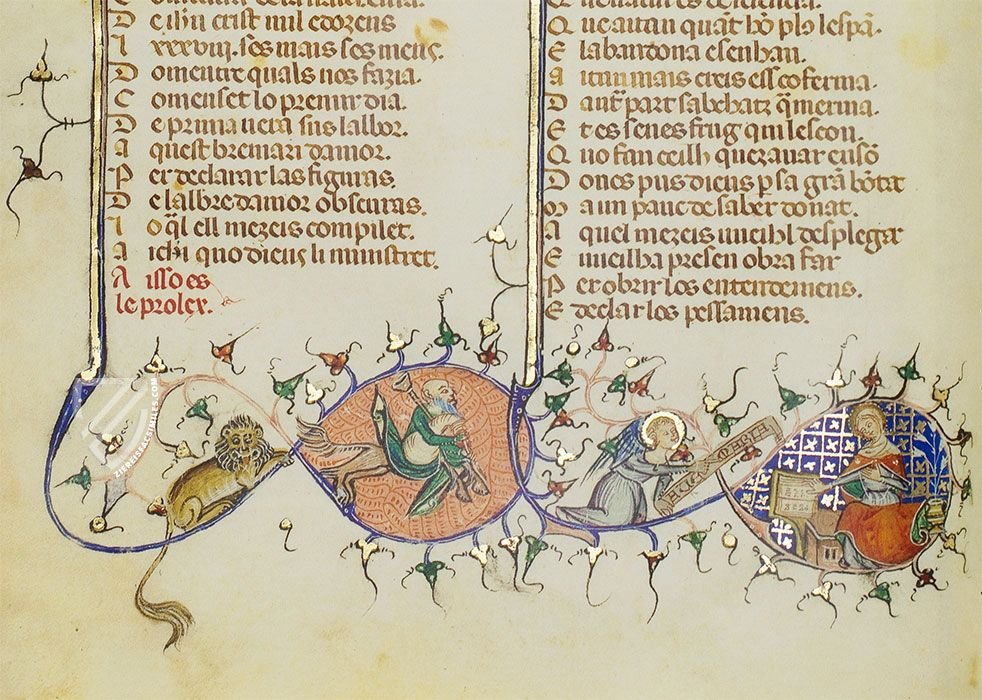 D e ih'u crist mil e dozens
I xxxviij. ses mais ses mens.
D omentre quals nos fazia.
C omenset lo premier dia.
D e prima uera sus lalbor.
A quest breuiari damor.
P er declarar las figuras.
D e lalbre damor obscuras.
I o q̃l ell mezeis compilet.
A ichi quo dieus li ministret.
A isso es
le prolex.
Q ue autan quãt hõ plo lespã.
E labandona e senhan.
A itan mais creis ess coferma.
D autr̃ part sabchatz q̃ merma.
E t es senes frug qui lescon.
Q uo fan ceilh quez auar en sõ
D oncs pus dieus p sa grã bõtat
M a un pauc de saber donat.
A quel mezeis uueihl despleger
E uueilha presen obra far
P er obrir los entendemens.
E declar los pessamens.
MARIA
ZIEREISSFACSIMILES.COM